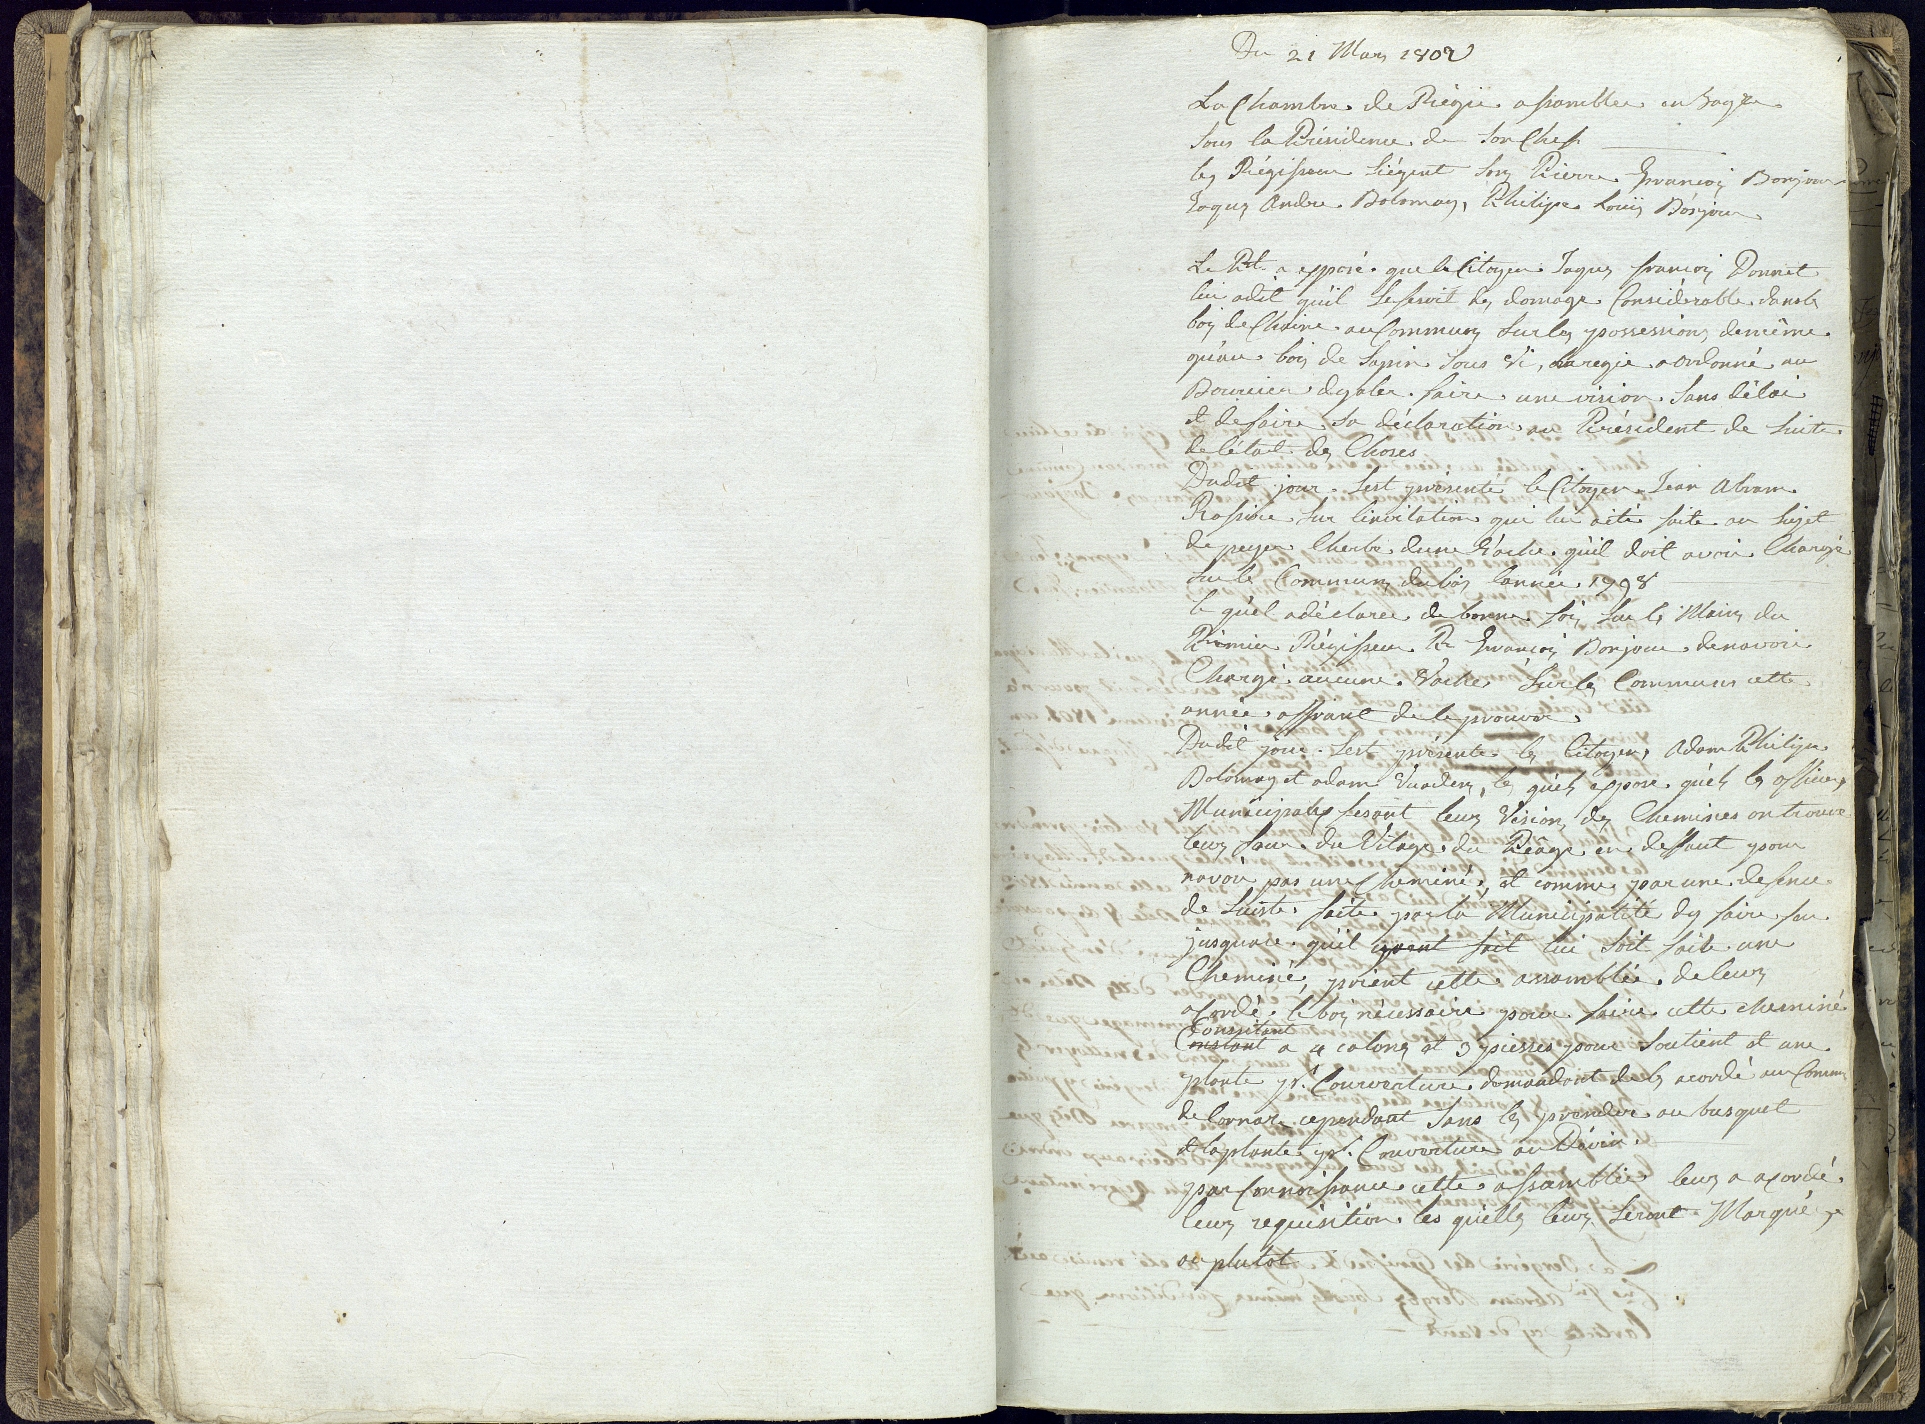 Du 21 Mars 1802
La Chambre de Régie assamblée en
Sous la Présidence de Son Chef
les Régisseur Siégent Son Pierre François Bonjour
Jaques Andre Bolomey, Philipe Louis Bonjour
Le Pdt a epposé que le Citoyen Jaques françois Donnet
lui adit quil Sefesoit des domage Considérable dansle
bois de Chaine au Communs Sur les possessions demême
quau bois de Sapin Sous Vi, la regie a ordonné au
Boursier dyaler faire une vision Sans délai
et defaire Sa déclaration au Président de Suite
de létat des Choses
Dudit jour Sest présenté le Citoyen Jean Abram
Sur linvitation qui lui aété faite au Sujet
de peyer Lherbe dune Vache quil doit avoir Chargé
Sur le Communs du bois lannée 1798
le quel adéclaree de bonne fois Sur les Mains du
Prémier Régisseur Pre François Bonjour denavoir
Chargé aucune Vache Sur les Communs cette
année offrant de le prouver
Dudit jour Sest présenté les Citoyens Adam Philipe
Bolomey et adam les quels eppose quels les officiers
Municipales fesant leurs Vision des Cheminées on trouvé
leurs four du Vilage du Péage en deffaut pour
navoir pas une Cheminé, et comme par une defence
de Suiste faite par la Municipalité dy faire feu
jusquace quil ayent fait lui Soit faite une
Cheminé, prient cette assamblée de leurs
acordé le bois nécessaire pour faire cette cheminé
Conssitant
Constant a 4 colones et 3 piesses pour Soutient et une
plante pr. Couverture demandant de les acordé au Comuns
de cependant Sans les prendre au busquet
et laplante pr. Couverture au Dévin
par Connoissance cette assamblée leurs a acordé
leurs requisition les quelles leurs Seront Marqué
au plutot